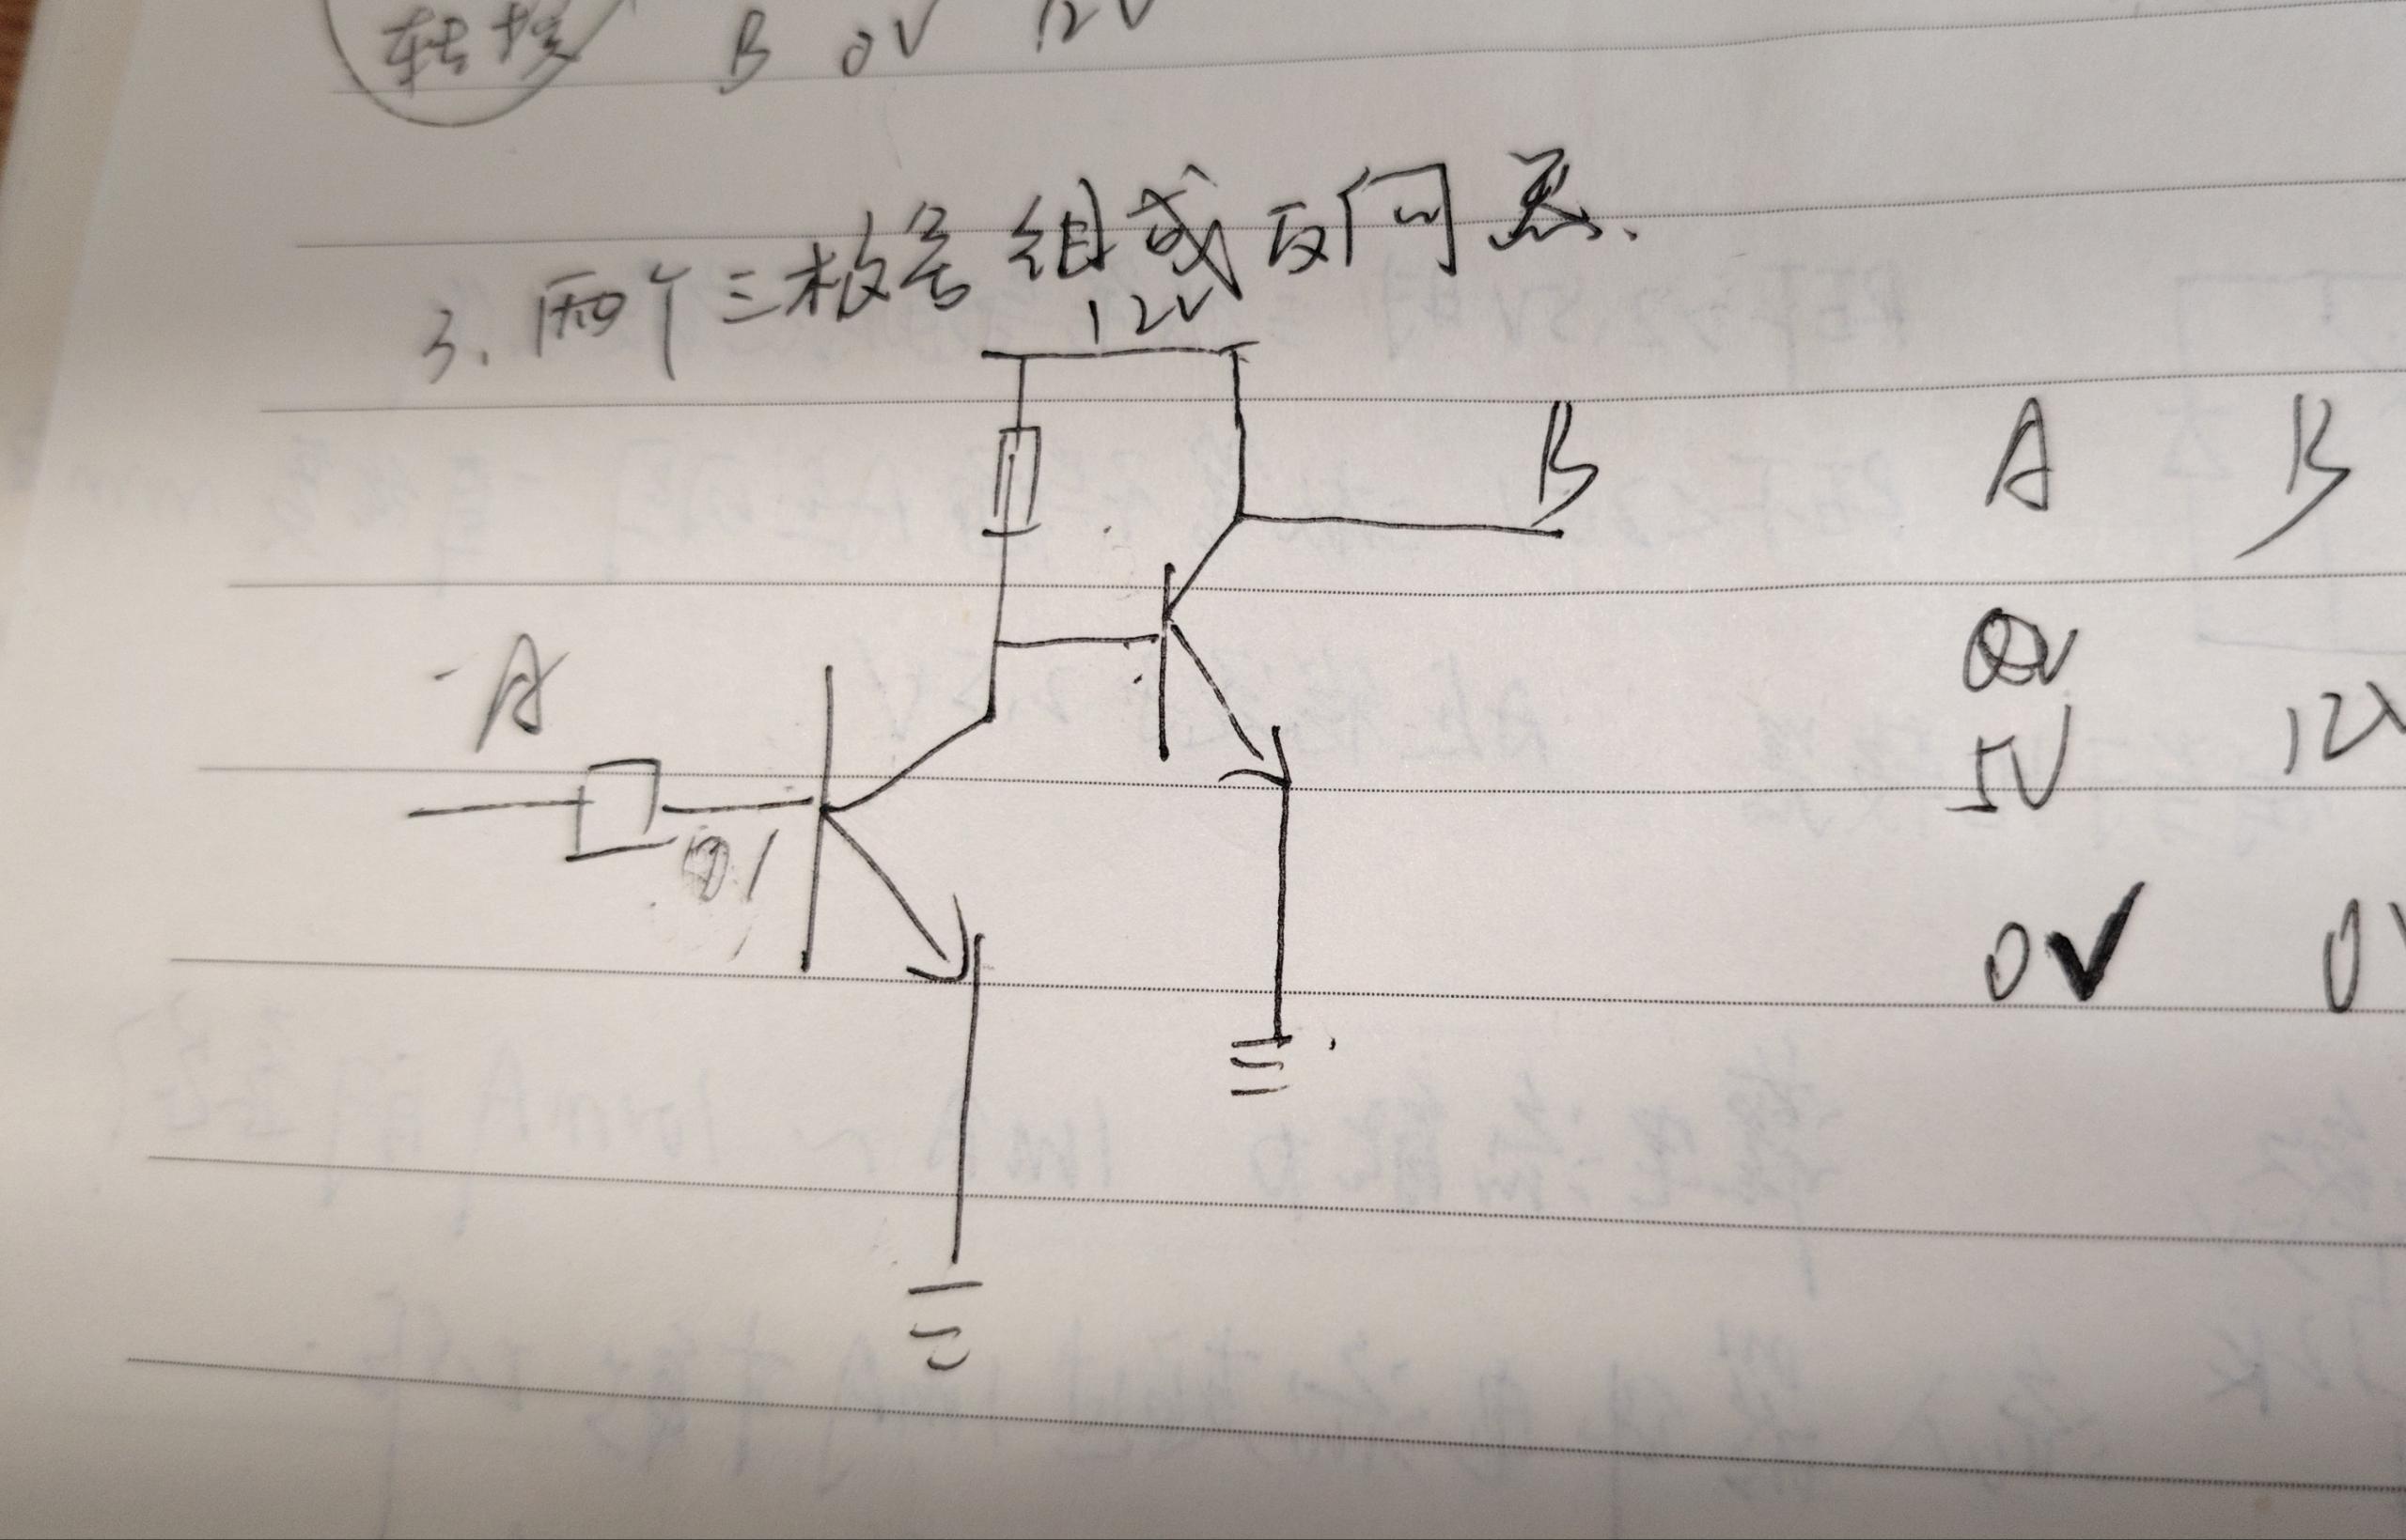 转换 B 0V 12V
3. 两个三极管组成反向器.
12V
B
A B
A
0V
5V 12V
0V 0V